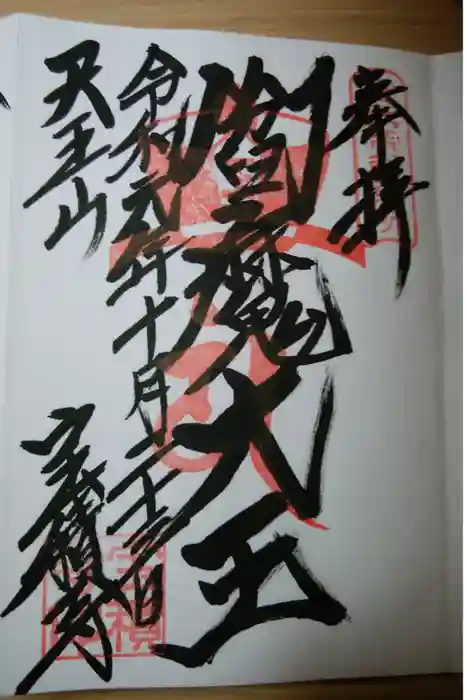 奉拝
閻魔大王
令和元年十月二十三日
天王山
宝積寺
宝積